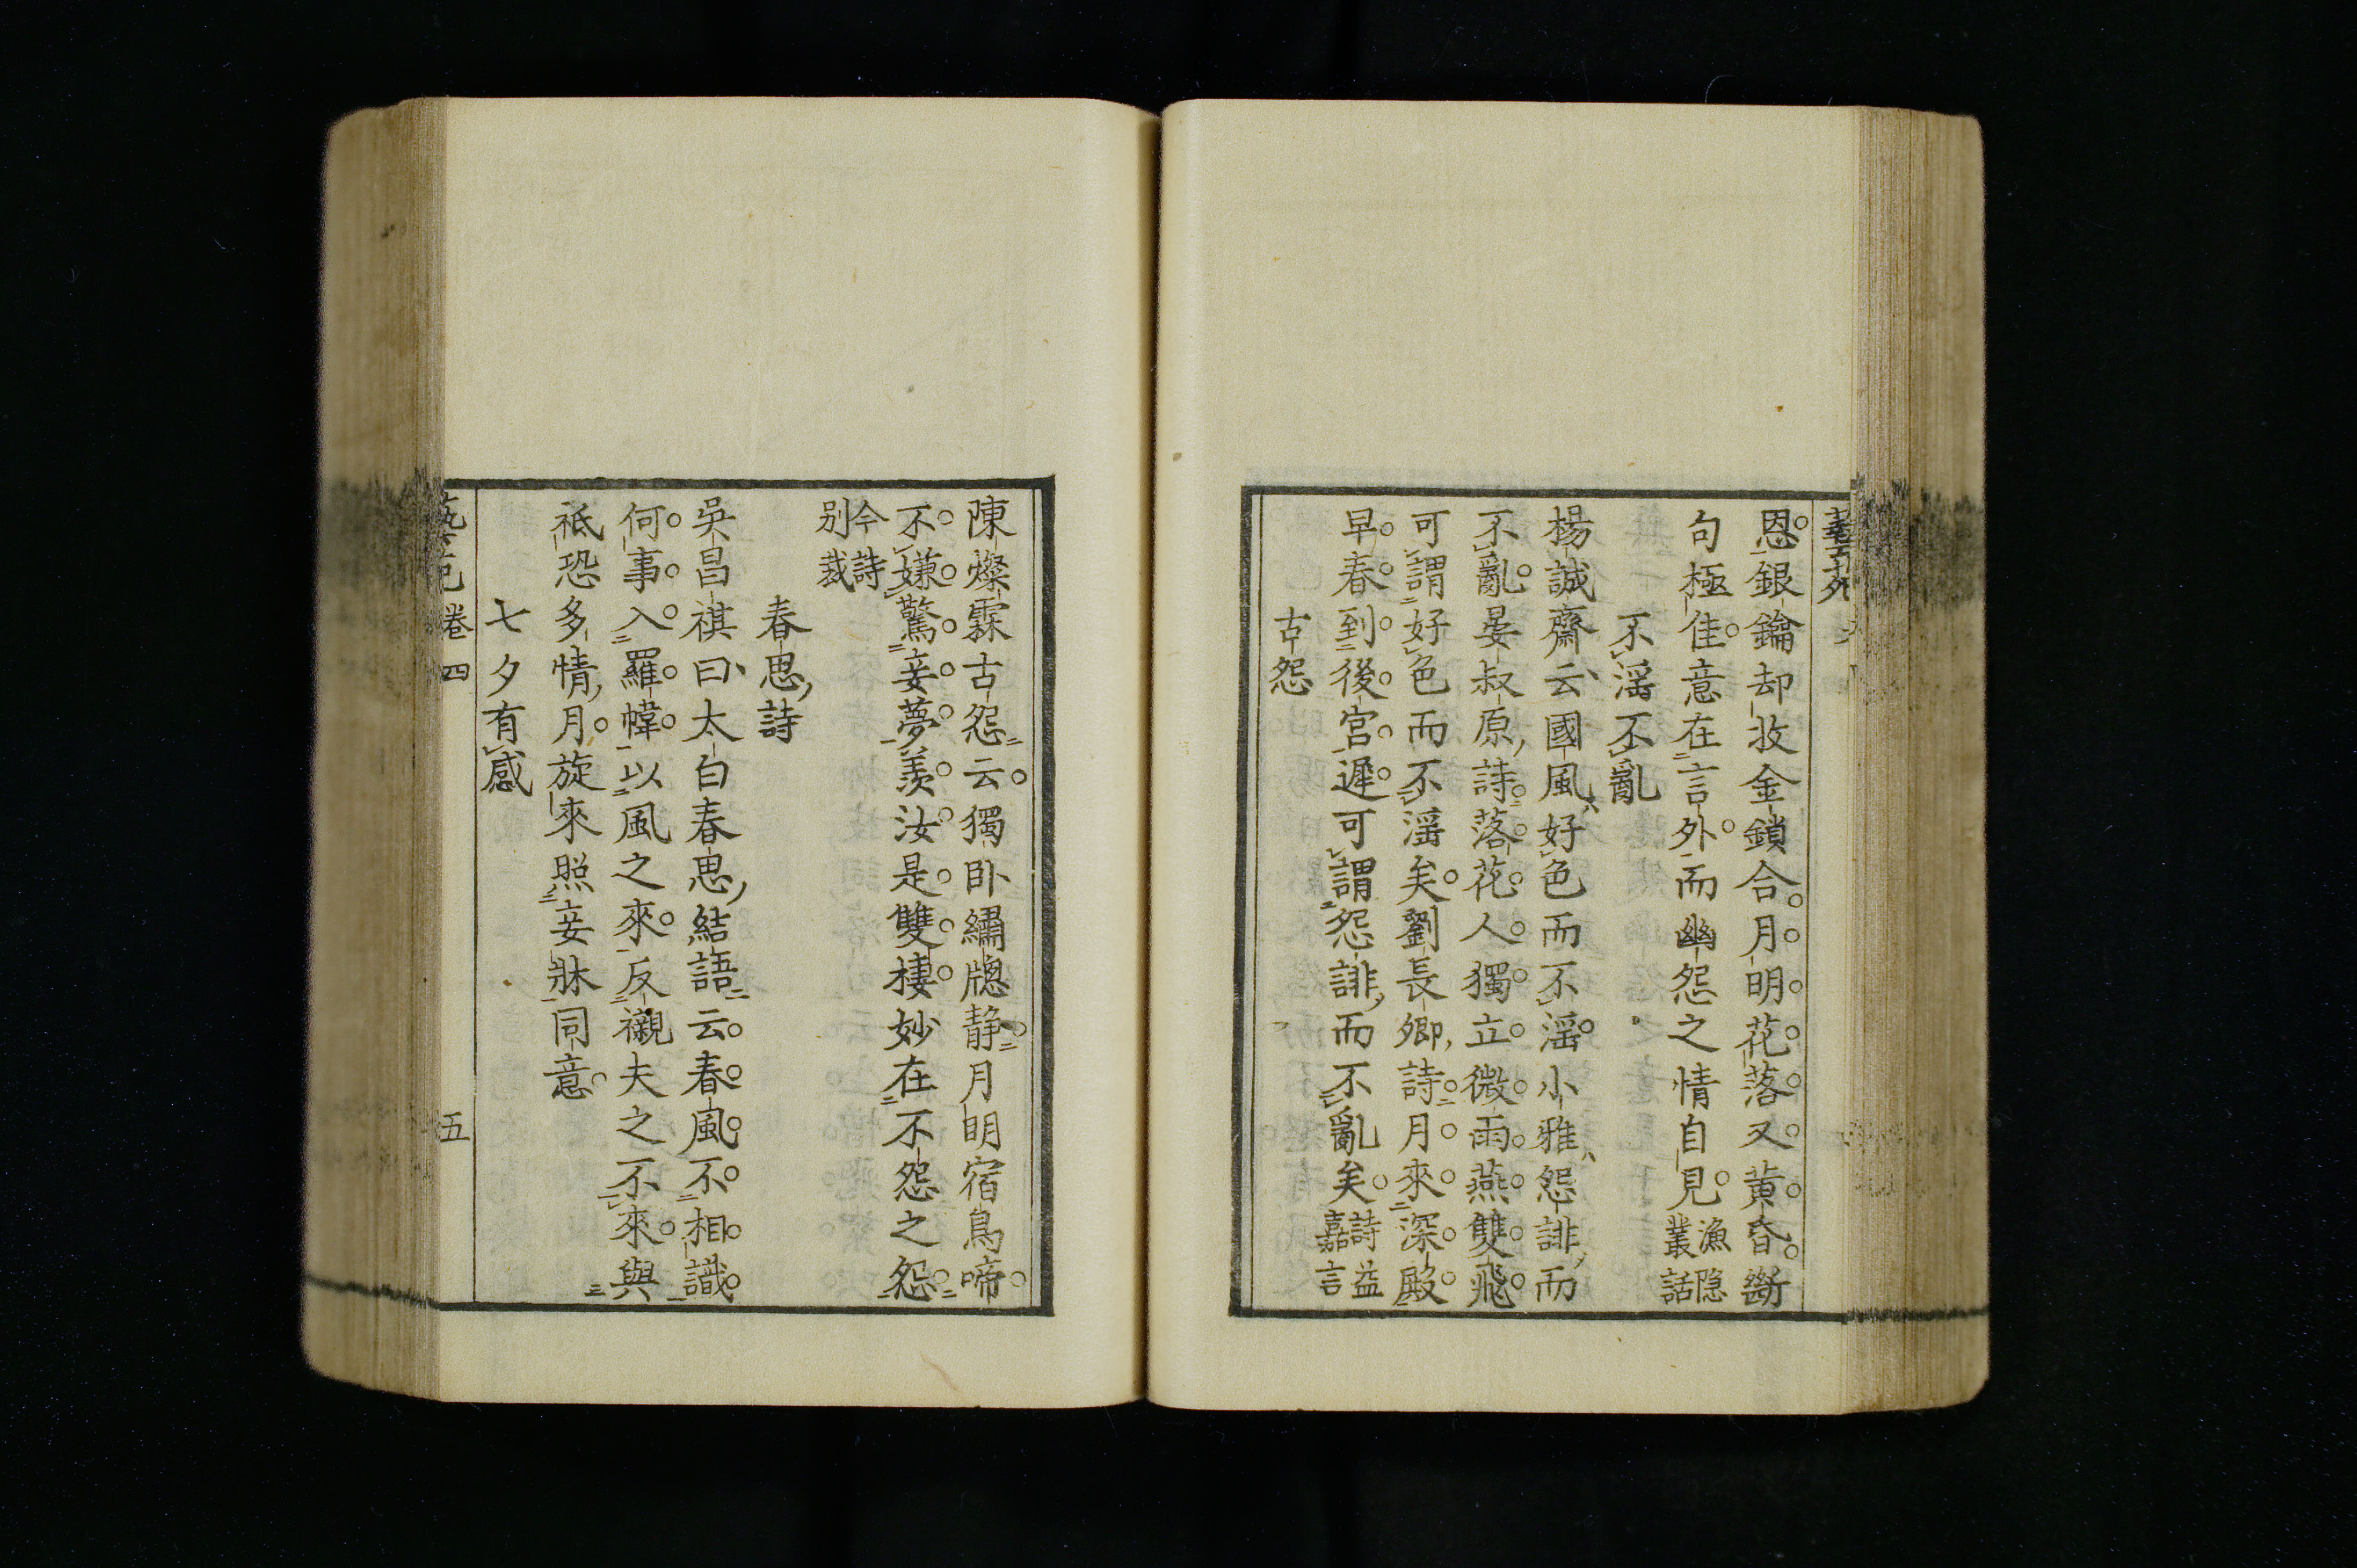 恩銀鑰却收金鎖合月明花落又黄昏斷
句極佳意在言外而幽怨之情自見漁隠
叢話
不滛不亂
楊誠齋云國風好色而不滛小雅怨誹而
不亂晏叔原詩落花人獨立微雨燕雙飛
可謂好色而不滛矣劉長卿詩月來深殿
早春到後宮遲可謂怨誹而不亂矣詩益
嘉言
古怨
陳燦霖古怨云獨卧繡牕静月明宿鳥啼
不嫌驚妾夢羨汝是雙棲妙在不怨之怨
今詩
别裁
春思詩
吳昌祺曰太白春思結語云春風不相識
何事入羅幃以風之來反襯夫之不來與
祇恐多情月旋來照妾牀同意
七夕有感
卷四
五